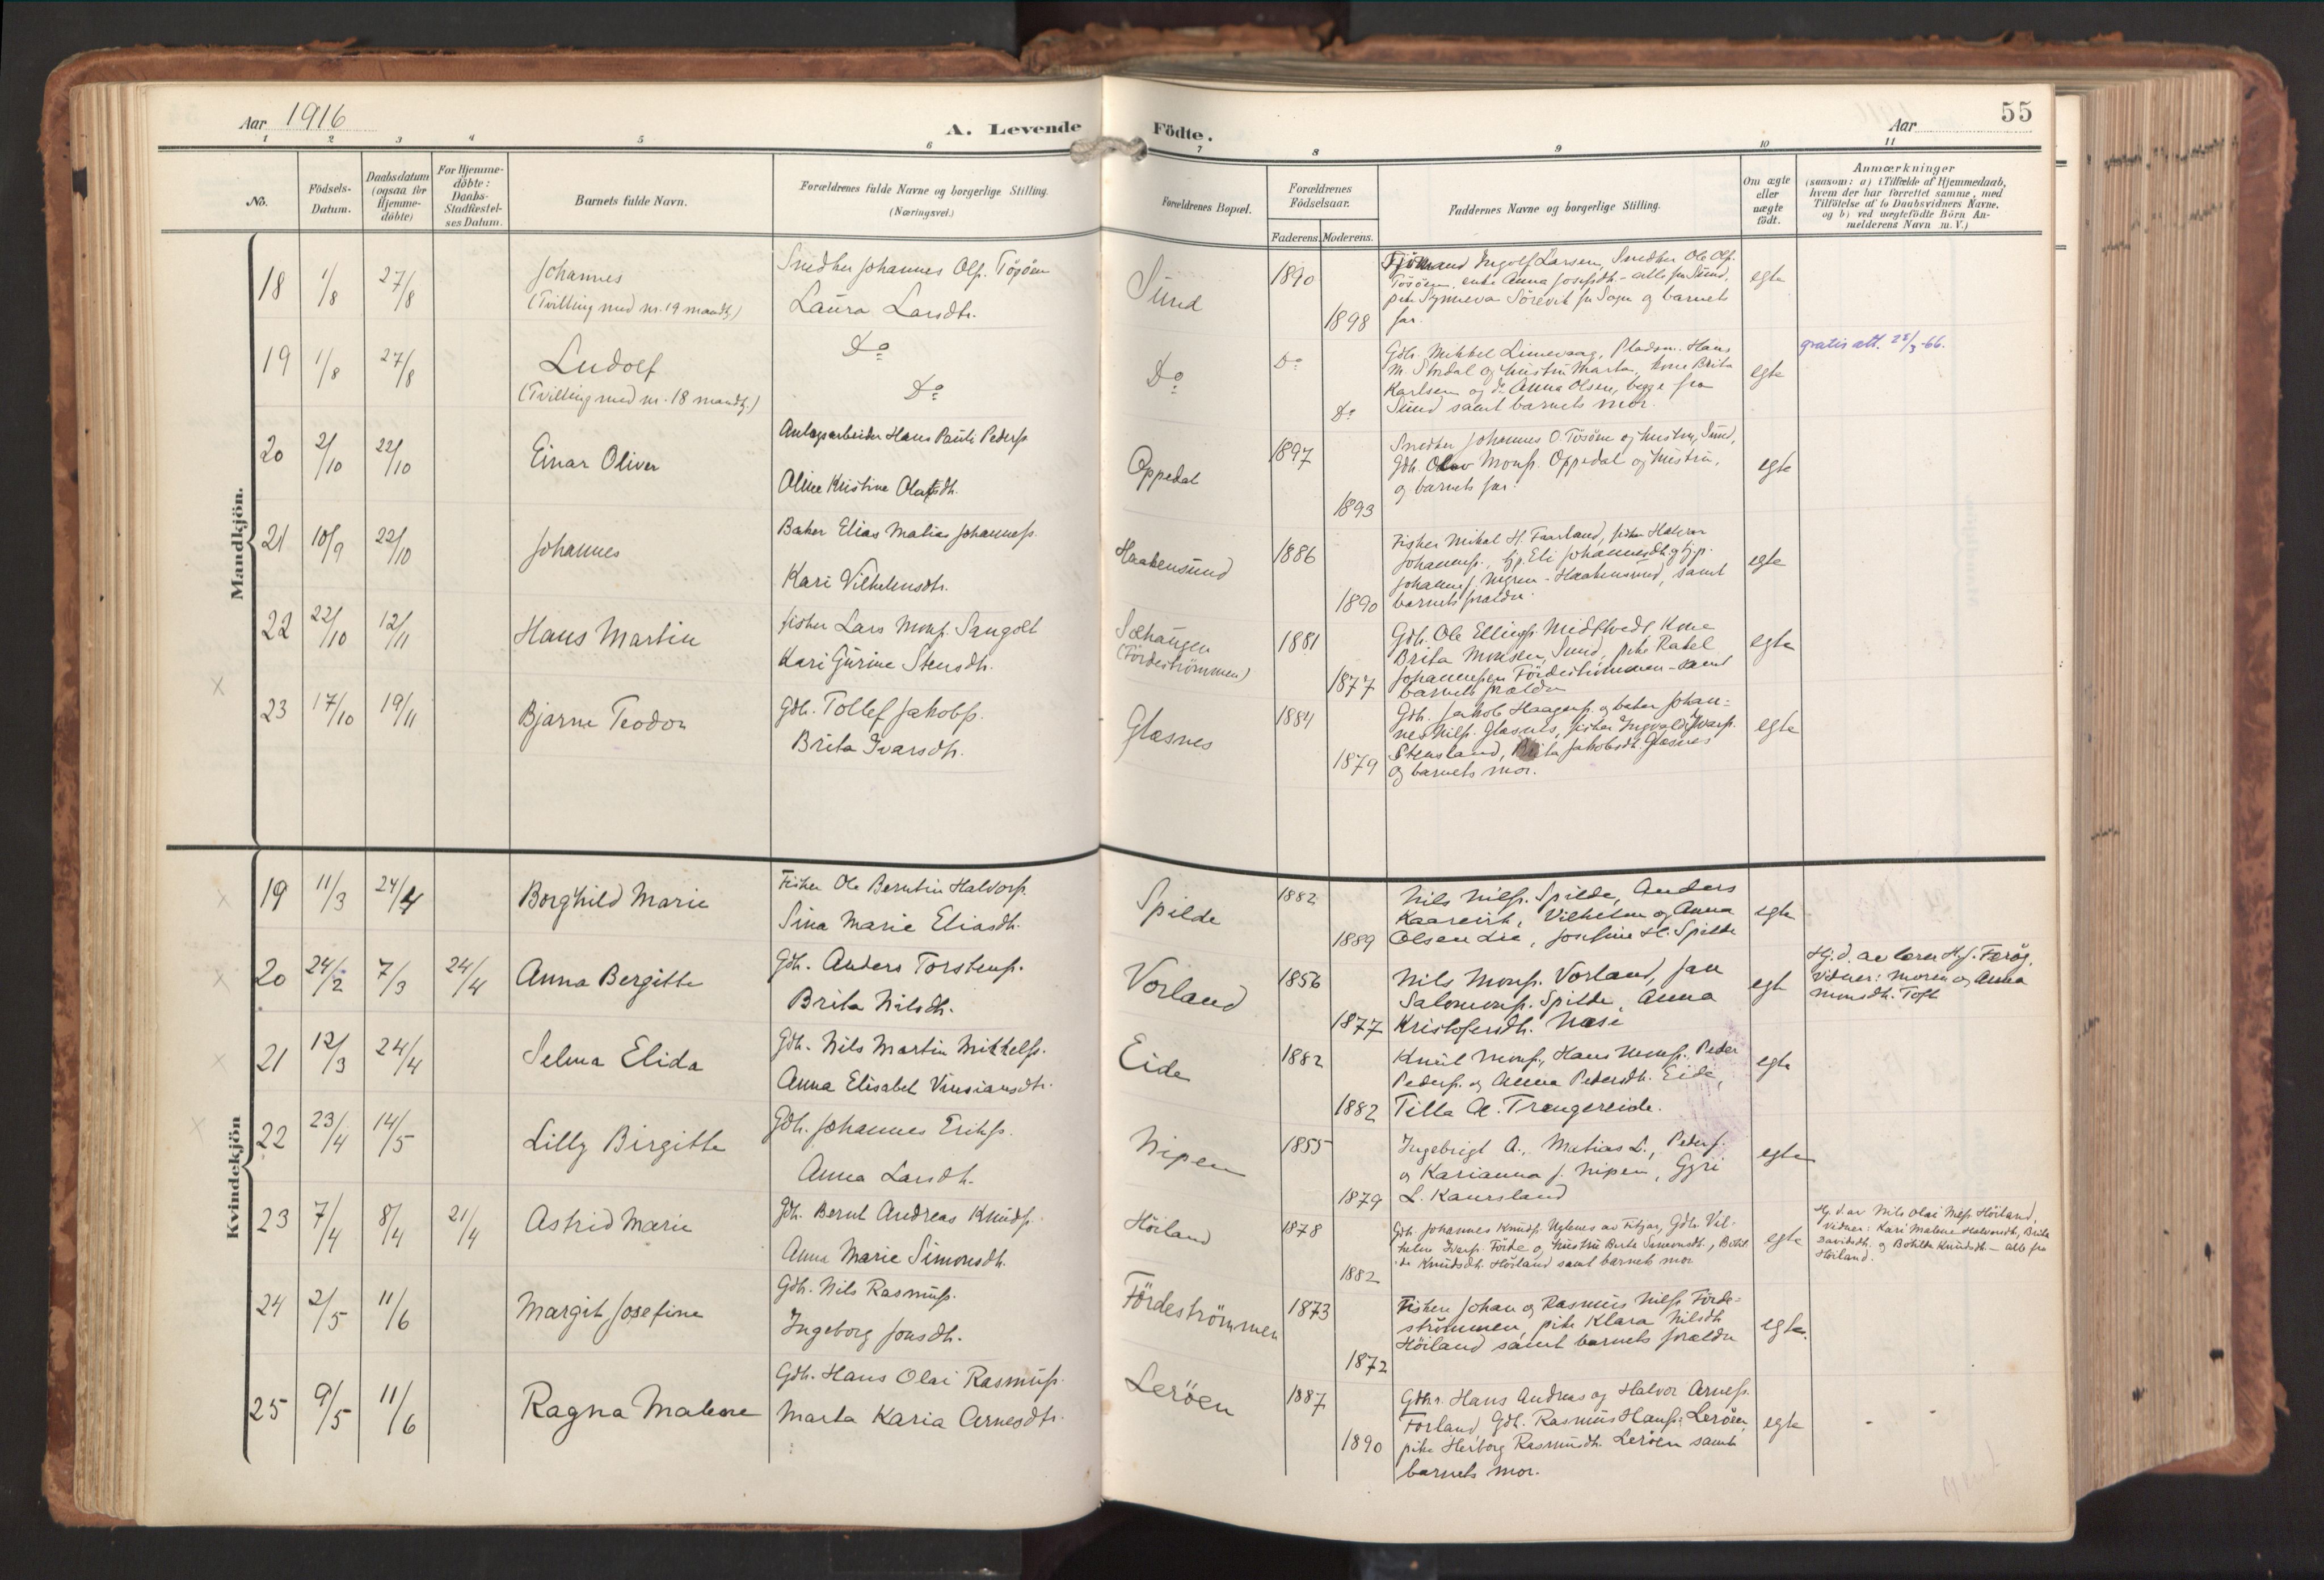 Aar 1916
A. Levende Födte.
Aar
55
1 2 3 4 5 6 7 8 9 10 11
No.
Födsels-
Datum.
Daabsdatum
(ogsaa for
Hjemme-
döbte)
For Hjemme-
döbte:
Daabs-
Stadfæstel-
ses Datum.
Barnets fulde Navn.
Forældrenes fulde Navne og borgerlige Stilling.
(Næringsvei.)
Forældrenes Bopæl.
Forældrenes
Födselsaar.
Faderens. Moderens.
Faddernes Navne og borgerlige Stilling.
Om ægte
eller
uægte
födt.
Anmærkninger
(saasom: a) i Tilfælde af Hjemmedaab,
hvem der har forrettet samme, med
Tilföielse af to Daabsvidners Navne,
og b) ved uægtefödte Börn An-
melderens Navn m. V.)
Mandkjön.
18 1/8 27/8
Johannes
(Tvilling med nr. 19 mandkj.)
Snedker Johannes Ols. Tösöen
Laura Larsdtr.
Sund
1890
1898
Ingolf Larsen, Snedker Ole Ols.
Tösöen, enke Anna Josefsdtr. - alle fra Sund,
pike Synneva Sörevik fra Sogn og barnets
far.
egte
19 1/8 27/8
Ludolf
(Tvilling med nr. 18 mandkj.)
Do
Do
Do
Do
Do
Gdbr. Mikkel Limevaag, Pladsm. Hans
M. Stordal og hustru Marta, kone Brita
Karlsen og do Anna Olsen, begge fra
Sund samt barnets mor.
egte
gratis att. 28/3-66.
20 2/10 22/10
Einar Oliver
Anlægsarbeider Hans Pauli Peders.
Aline Kristine Olafsdtr.
Oppedal
1897
1893
Snedker Johannes O. Tösöen og hustru, Sund,
Gdb. Olav Mons. Oppedal og hustru,
og barnets far.
egte
21 10/9 22/10
Johannes
Baker Elias Matias Johannes.
Kari Vilhelmsdtr.
Haakensund
1886
1890
Fisker Mikal H. Faarland, fisker Halvor
Johannes., tjp. Eli Johannesdtr. og tjp.
Johannes Mgren - Haakensund, samt
barnets forældre.
egte
22 22/10 12/11
Hans Martin
fisker Lars Mons. Sangolt
Kari Gurine Stensdtr.
Solhaugen
(Fördeströmmen)
1881
1877
Gdb. Ole Ellings. Midttvedt, Kone
Brita Monsen, Sund, pike Rakel
Johannessen Fördeströmmen - samt
barnets forældre
egte
23 17/10 19/11
Bjarne Teodor
Gdb. Tollef Jakobs.
Brita Ivarsdtr.
Glæsnes
1884
1879
Gdb. Jakob Haagens. og baker Johan-
nes Nils. Glæsnes, fisker Ingvald Ivars.
Stensland, Brita Jakobsdtr. Glæsnes
og barnets mor.
egte
Kvindekjön
19 11/3 24/4
Borghild Marie
Fisker Ole Berntin Halvors.
Sina Marie Eliasdtr.
Spilde
1882
1889
Nils Nils. Spilde, Anders
Kaarevik, Vilhelm og Anna
Olsen Lie, Josefine H. Spilde
egte
20 24/2 7/3 24/4
Anna Bergitte
Gdb. Anders Torstens.
Brita Nilsdtr.
Vorland
1856
1877
Nils Mons. Vorland, Jan
Salomons. Spilde, Anna
Kristofersdtr. Næse
egte
Hj. d. av lærer Hj. Færöy.
Vidner: Moren og Anna
Monsdtr. Toft
21 12/3 24/4
Selma Elida
Gdb. Nils Martin Mikkels.
Anna Elisabet Vinsiansdtr.
Eide
1882
1882
Knut Mons., Hans Mons., Peder
Peders. og Anna Pedersdtr. Eide,
Tilla A. Trængereide.
egte
22 23/4 14/5
Lilly Birgitte
Gdb. Johannes Eriks.
Anna Larsdtr.
Nipen
1855
1879
Ingebrigt A., Matias L., Peder J.
og Karianna J. Nipen, Gyri
L. Kaursland
egte
23 7/4 8/4 21/4
Astrid Marie
Gdb. Bernt Andreas Knuds.
Anna Marie Simonsdtr.
Höiland
1878
1882
Gdb. Johannes Knuds. Uglenes av Fitjar, Gdb. Vil-
helm Ivars. Förde og hustru Berta Simonsdtr., Botil-
de Knudsdtr. Höiland samt barnets mor
egte
Hj. d. av Nils Olai Nils. Höiland,
Vidner: Kari Malene Halvorsdtr., Brita
Davidsdtr. og Botilde Knudsdtr. - alle fra
Höiland.
24 2/5 11/6
Margit Josefine
Gdb. Nils Rasmus.
Ingeborg Jonsdtr.
Fördeströmmen
1873
1872
Fiskere Johan og Rasmus Nils. Förde-
strömmen, pike Klara Nilsdtr.
Höiland samt barnets forældre
egte.
25 9/5 11/6
Ragna Malene
Gdb. Hans Olai Rasmus.
Marta Karia Arnesdtr.
Leröen
1887
1890
Gdbr. Hans Andreas og Halvor Arnes.
Forland, Gdb. Rasmus Hans. Leröen,
pike Herborg Rasmusdtr. Leröen samt
barnets mor.
egte